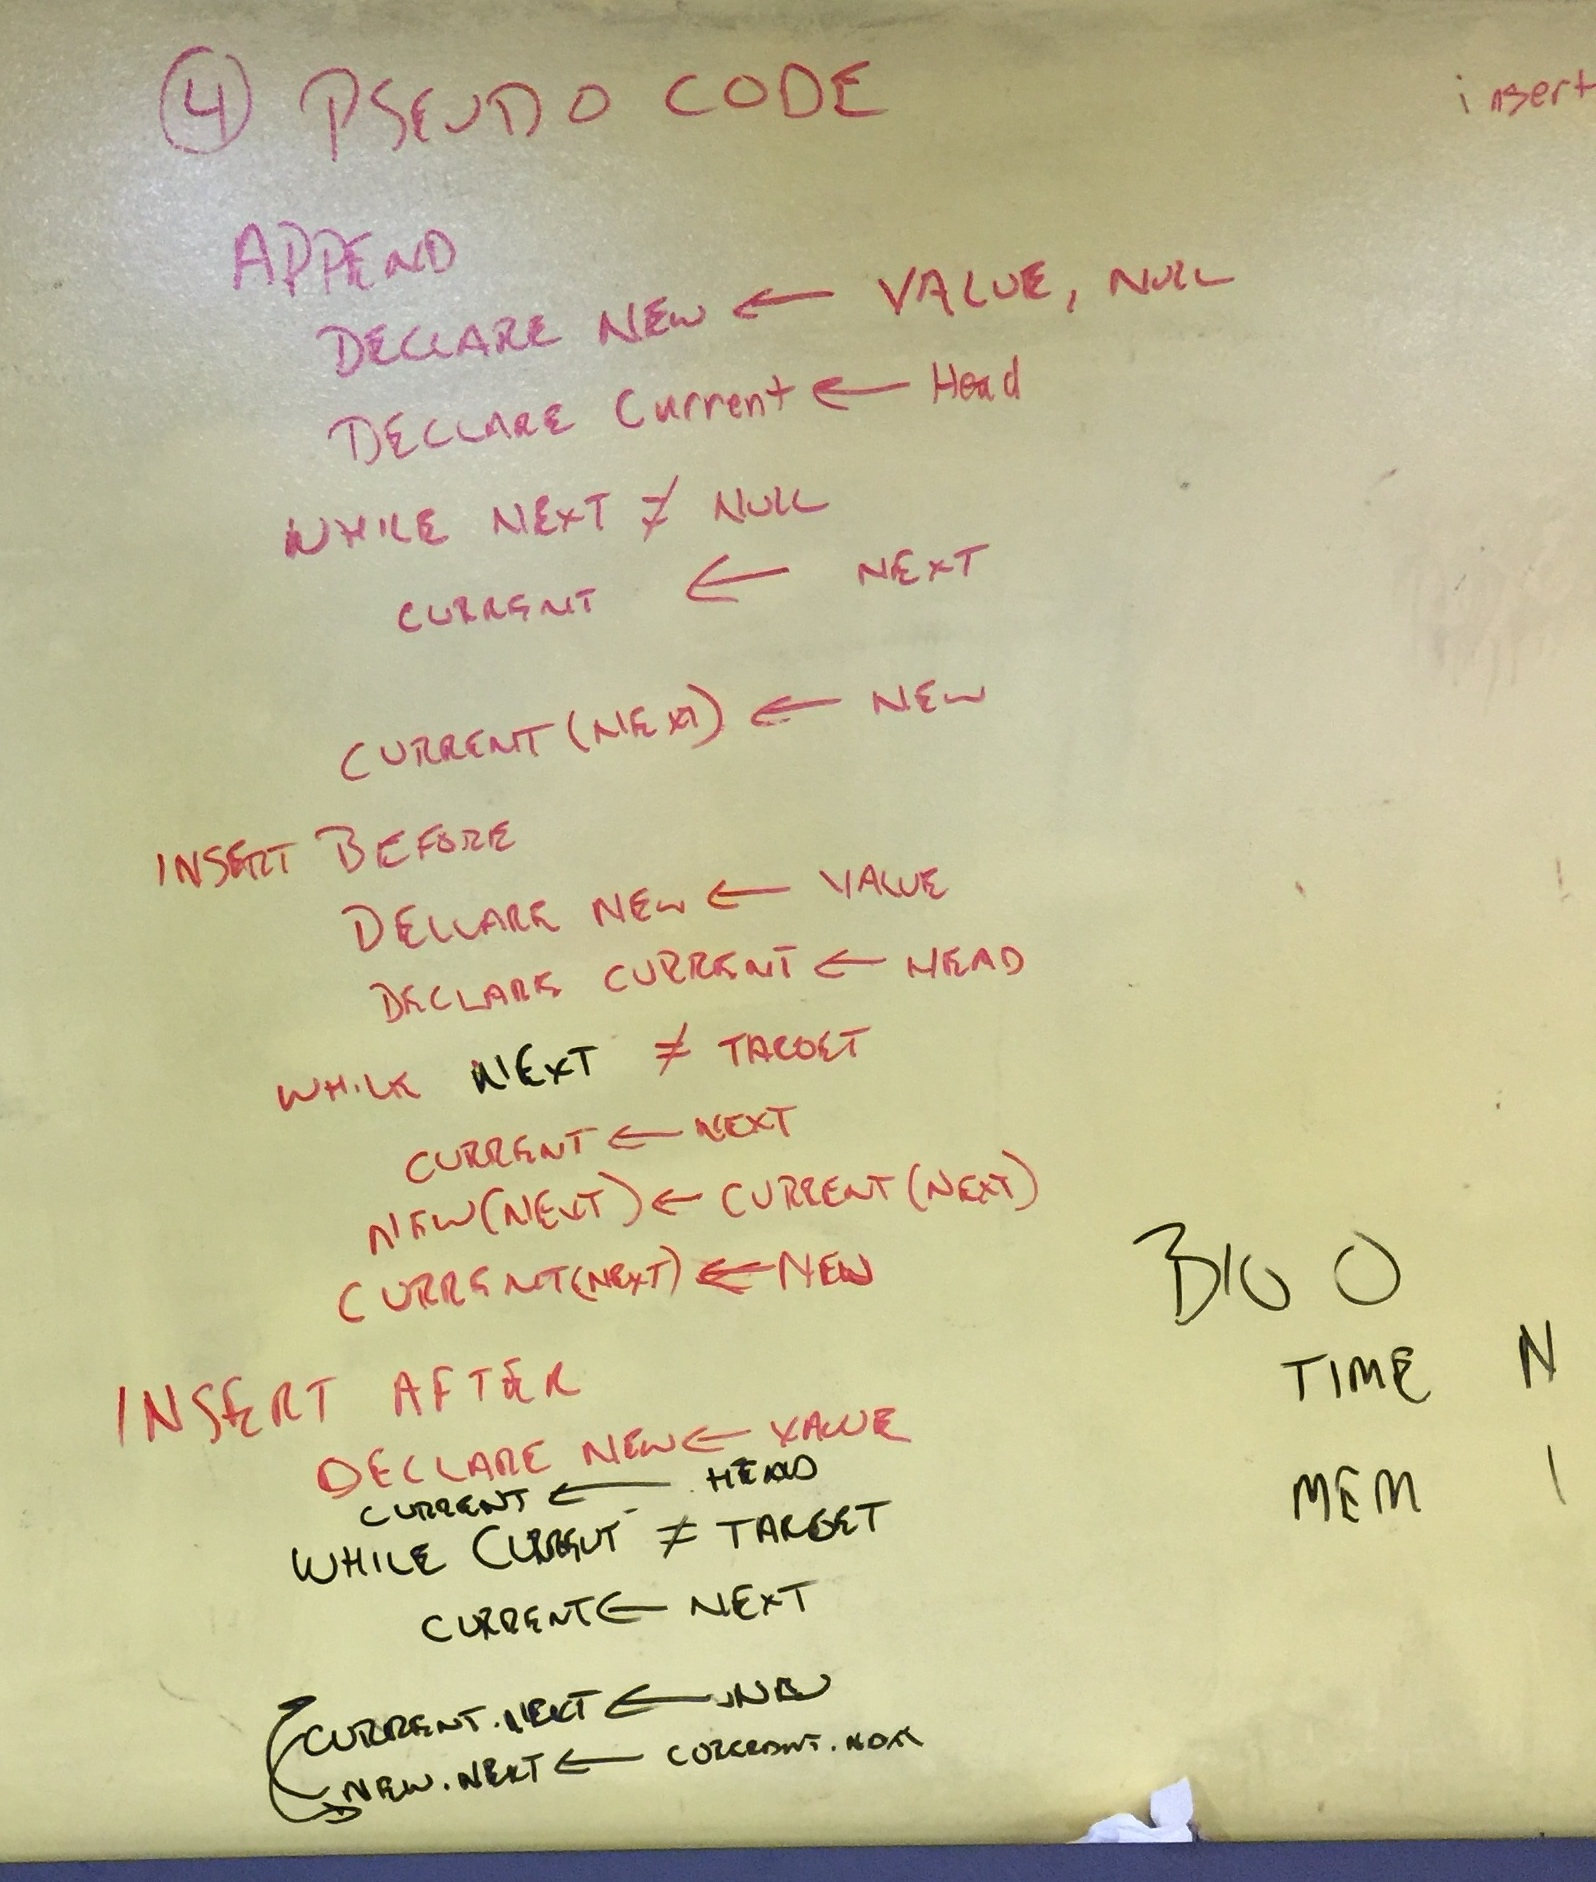 ④ PSEUDO CODE
insert
APPEND
DECLARE NEW ← VALUE, NULL
DECLARE Current ← Head
WHILE NEXT ≠ NULL
CURRENT ← NEXT
CURRENT (NEXT) ← NEW
INSERT BEFORE
DECLARE NEW ← VALUE
DECLARE CURRENT ← HEAD
WHILE NEXT ≠ TARGET
CURRENT ← NEXT
NEW (NEXT) ← CURRENT (NEXT)
CURRENT (NEXT) ← NEW
BIG O
TIME N
MEM 1
INSERT AFTER
DECLARE NEW ← VALUE
CURRENT ← HEAD
WHILE CURRENT ≠ TARGET
CURRENT ← NEXT
CURRENT.NEXT ← NEW
NEW.NEXT ← CURRENT.NEXT